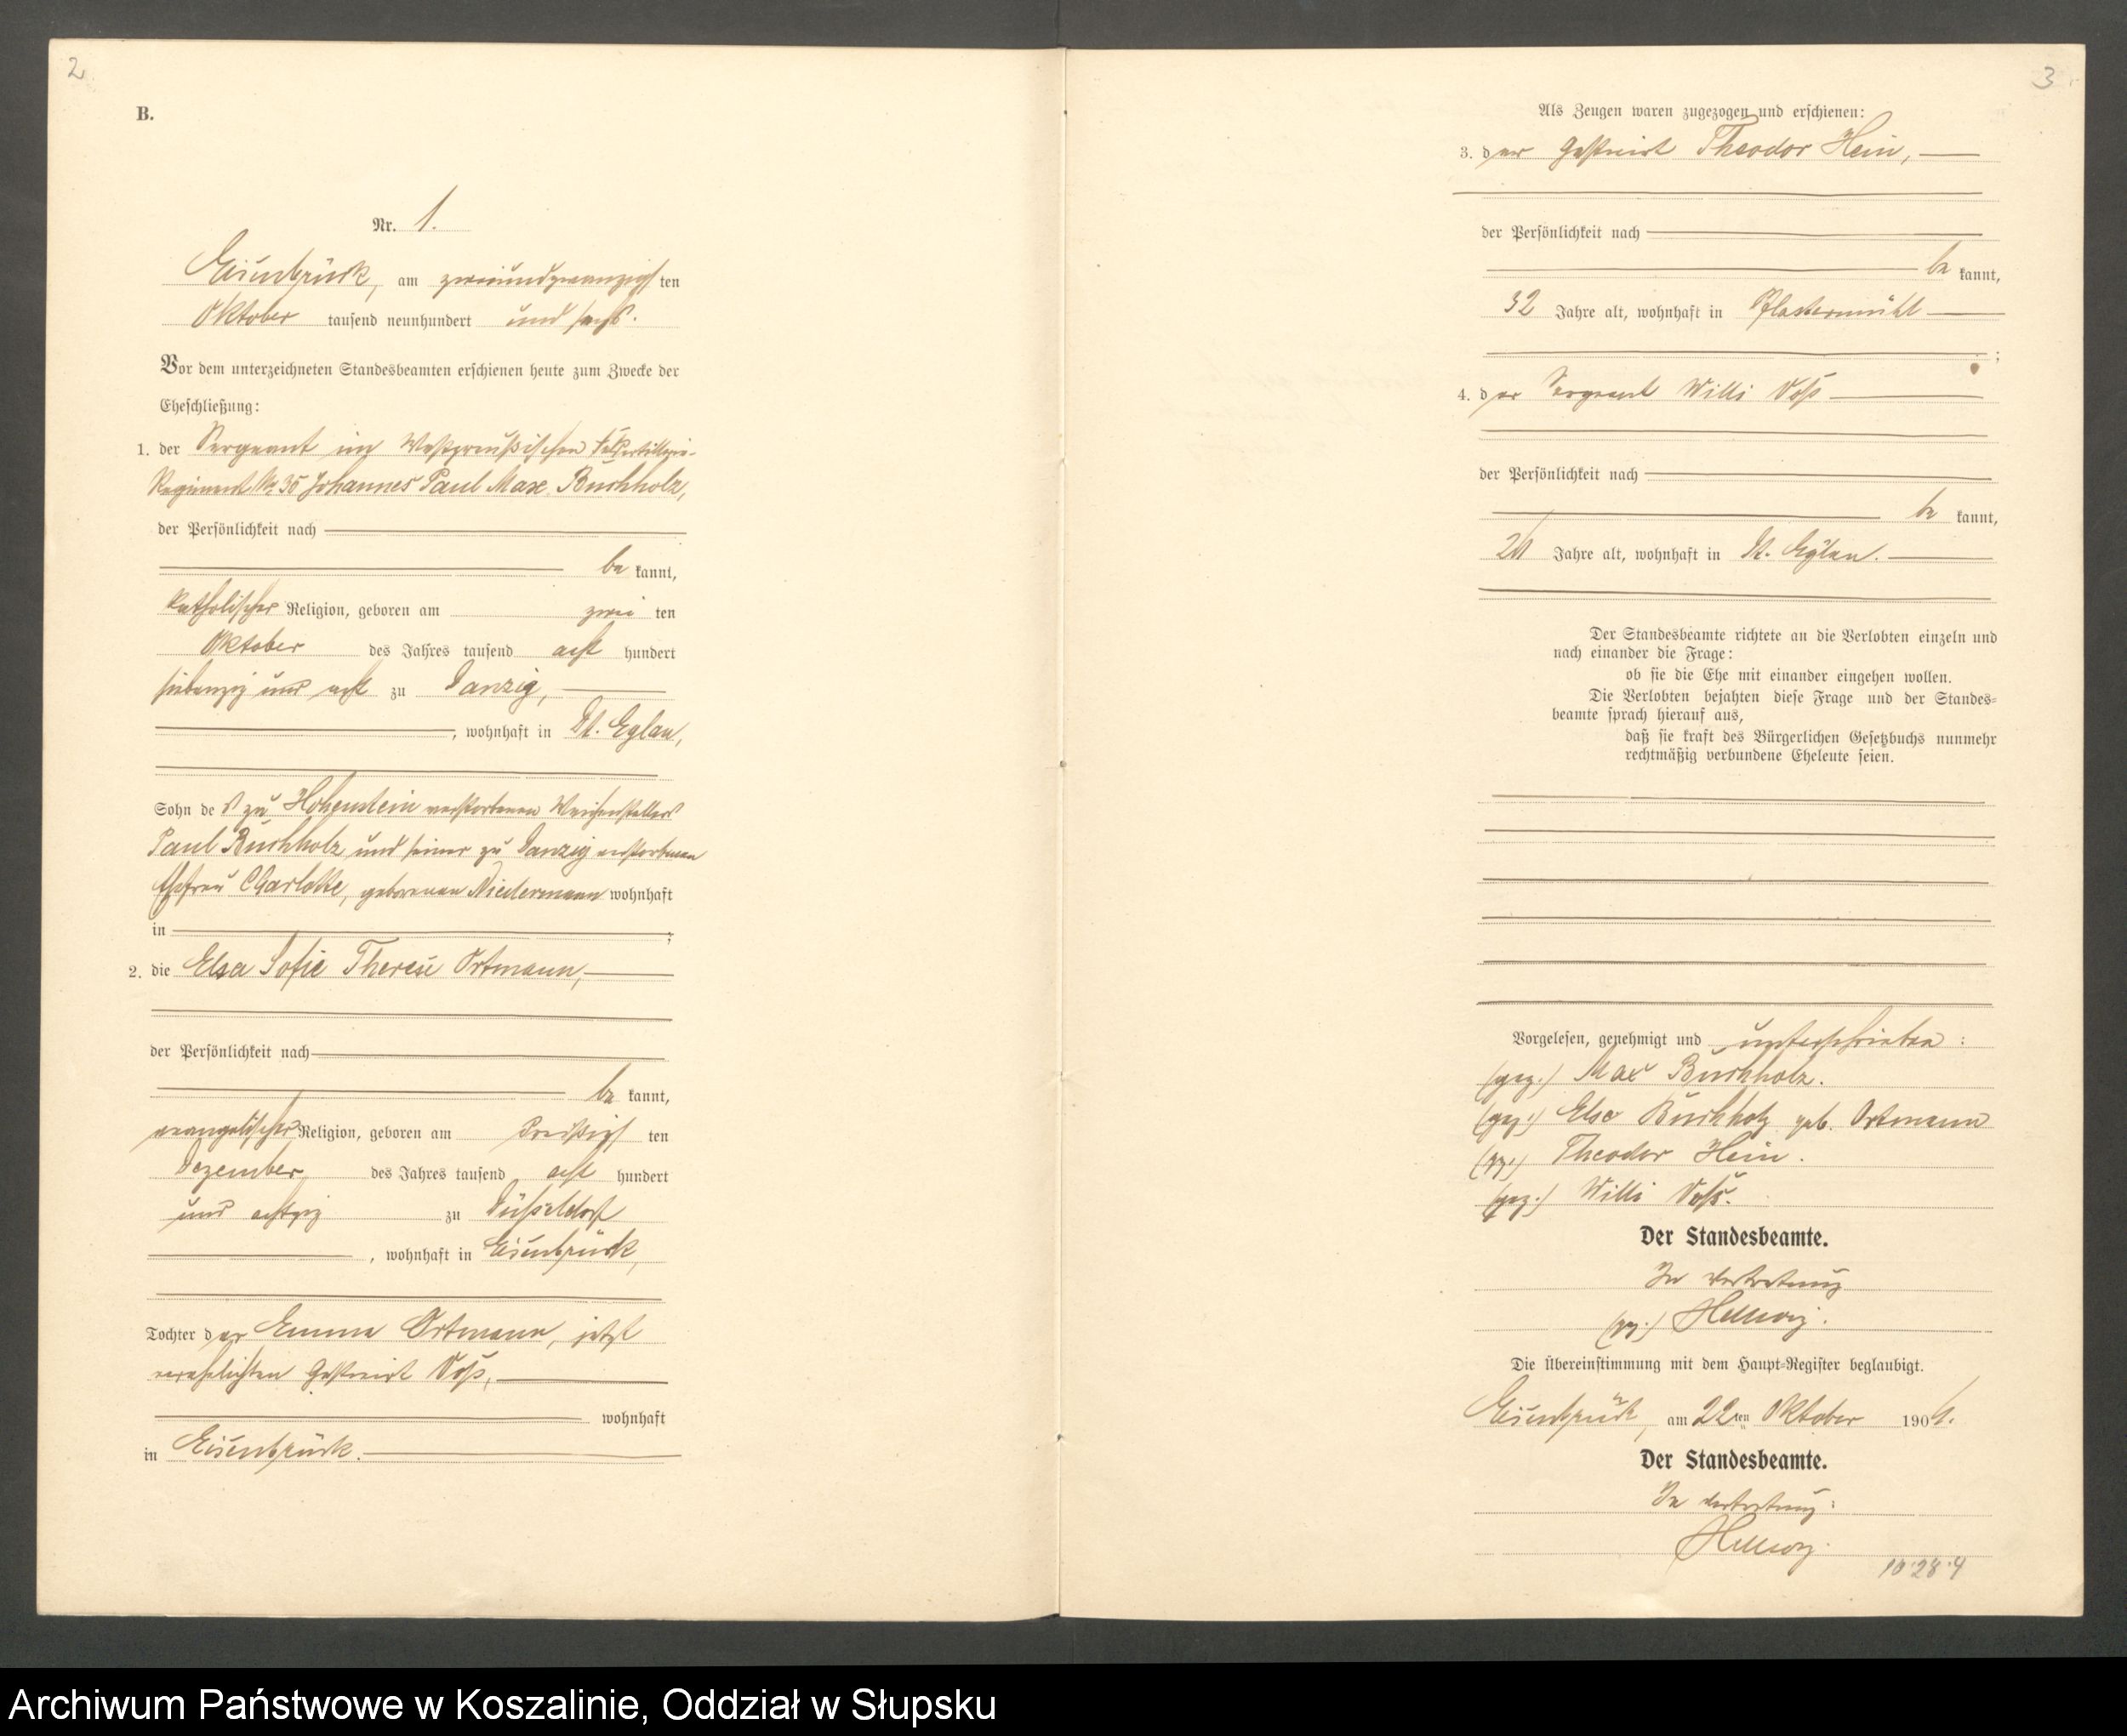 2
B.
Nr. 1.
Eisenbrück, am zweiundzwanzigsten
Oktober tausend neunhundert und sechs.
Vor dem unterzeichneten Standesbeamten erschienen heute zum Zwecke der
Eheschließung:
1. der Sergeant im Westpreußischen Feldartillerie-
Regiment No 35 Johannes Paul Max Buchholz,
der Persönlichkeit nach
be kannt,
katholischer Religion, geboren am zwei ten
Oktober des Jahres tausend acht hundert
siebenzig und acht zu Danzig,
, wohnhaft in Dt. Eylau,
Sohn des zu Hohenstein verstorbenen Weichenstellers
Paul Buchholz und seiner zu Danzig verstorbenen
Ehefrau Charlotte, geborenen Niedermann wohnhaft
in ;
2. die Elsa Sofie Therese Ortmann,
der Persönlichkeit nach
be kannt,
evangelischer Religion, geboren am dreißigsten
Dezember des Jahres tausend acht hundert
und achtzig zu Düsseldorf
, wohnhaft in Eisenbrück,
Tochter der Emma Ortmann, jetzt
verehelichten Gastwirt Voß,
wohnhaft
in Eisenbrück.
3
Als Zeugen waren zugezogen und erschienen:
3. der Gastwirt Theodor Hein,
der Persönlichkeit nach
be kannt,
32 Jahre alt, wohnhaft in Pflastermühl
;
4. der Sergeant Willi Voß
der Persönlichkeit nach
be kannt,
Jahre alt, wohnhaft in Dt. Eylau.
Der Standesbeamte richtete an die Verlobten einzeln und
nach einander die Frage:
ob sie die Ehe mit einander eingehen wollen.
Die Verlobten bejahten diese Frage und der Standes-
beamte sprach hierauf aus,
daß sie kraft des Bürgerlichen Gesetzbuchs nunmehr
rechtmäßig verbundene Eheleute seien.
Vorgelesen, genehmigt und unterschrieben :
(gez.) Max Buchholz.
(gez.) Elsa Buchholz geb. Ortmann
(gez.) Theodor Hein.
(gez.) Willi Voß.
Der Standesbeamte.
In Vertretung
(gez.) Hellwig.
Die Übereinstimmung mit dem Haupt-Register beglaubigt.
Eisenbrück, am 22ten Oktober 1906.
Der Standesbeamte.
In Vertretung:
Hellwig.
10·28·4
Archiwum Państwowe w Koszalinie, Oddział w Słupsku